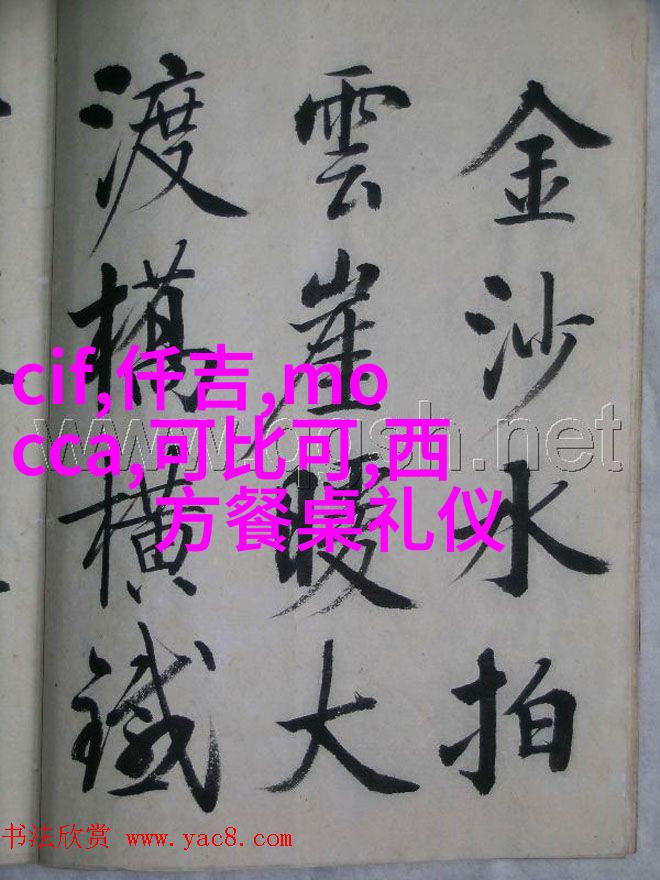 金沙水拍
雲崖暖大
渡橋横鐵
cif,仟吉,mo
cca,可比可,西
方餐桌礼仪
书法欣赏 www.yac8.com